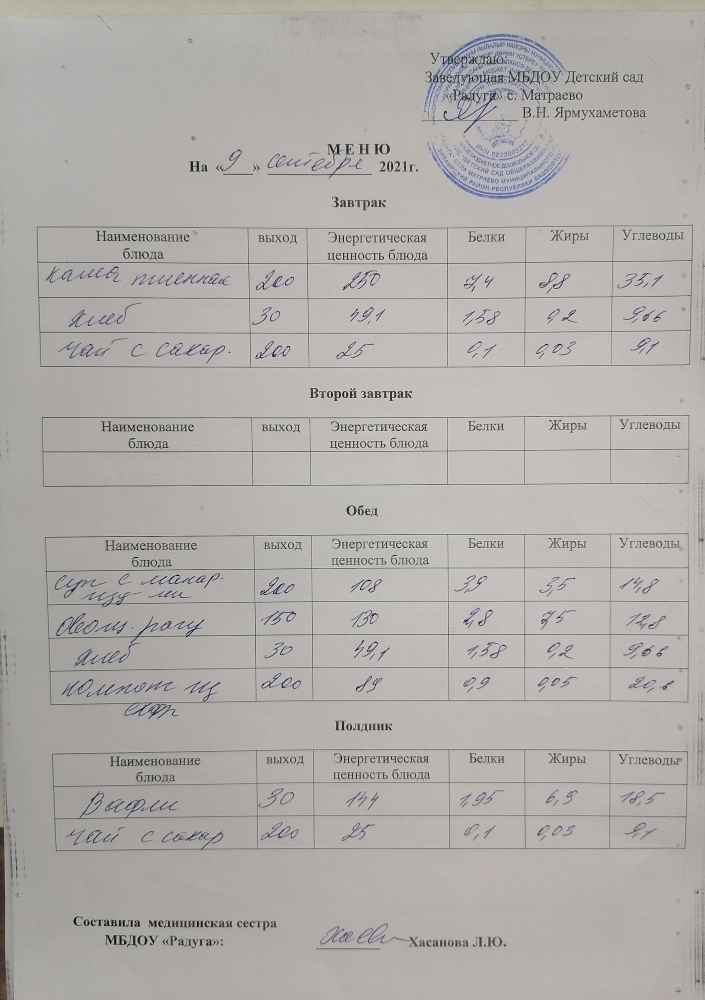 Утверждаю:
Заведующая МБДОУ Детский сад
«Радуга» с. Матраево
В.Н. Ярмухаметова
М Е Н Ю
На «9» сентября 2021г.
Завтрак
Наименование блюда выход Энергетическая ценность блюда Белки Жиры Углеводы
каша пшенная 200 250 7,4 8,8 35,1
хлеб 30 49,1 1,58 0,2 9,66
чай с сахар. 200 25 0,1 0,03 9,1
Второй завтрак
Наименование блюда выход Энергетическая ценность блюда Белки Жиры Углеводы
Обед
Наименование блюда выход Энергетическая ценность блюда Белки Жиры Углеводы
суп с макар. 200 108 3,9 3,5 14,8
изд-ми
овощ. рагу 150 130 2,8 7,5 12,8
хлеб 30 49,1 1,58 0,2 9,66
компот из 200 89 0,9 0,05 20,6
Полдник
Наименование блюда выход Энергетическая ценность блюда Белки Жиры Углеводы
Вафли 30 144 1,95 6,9 18,5
чай с сахар 200 25 0,1 0,03 9,1
Составила медицинская сестра
МБДОУ «Радуга»: Хасанова Л.Ю.